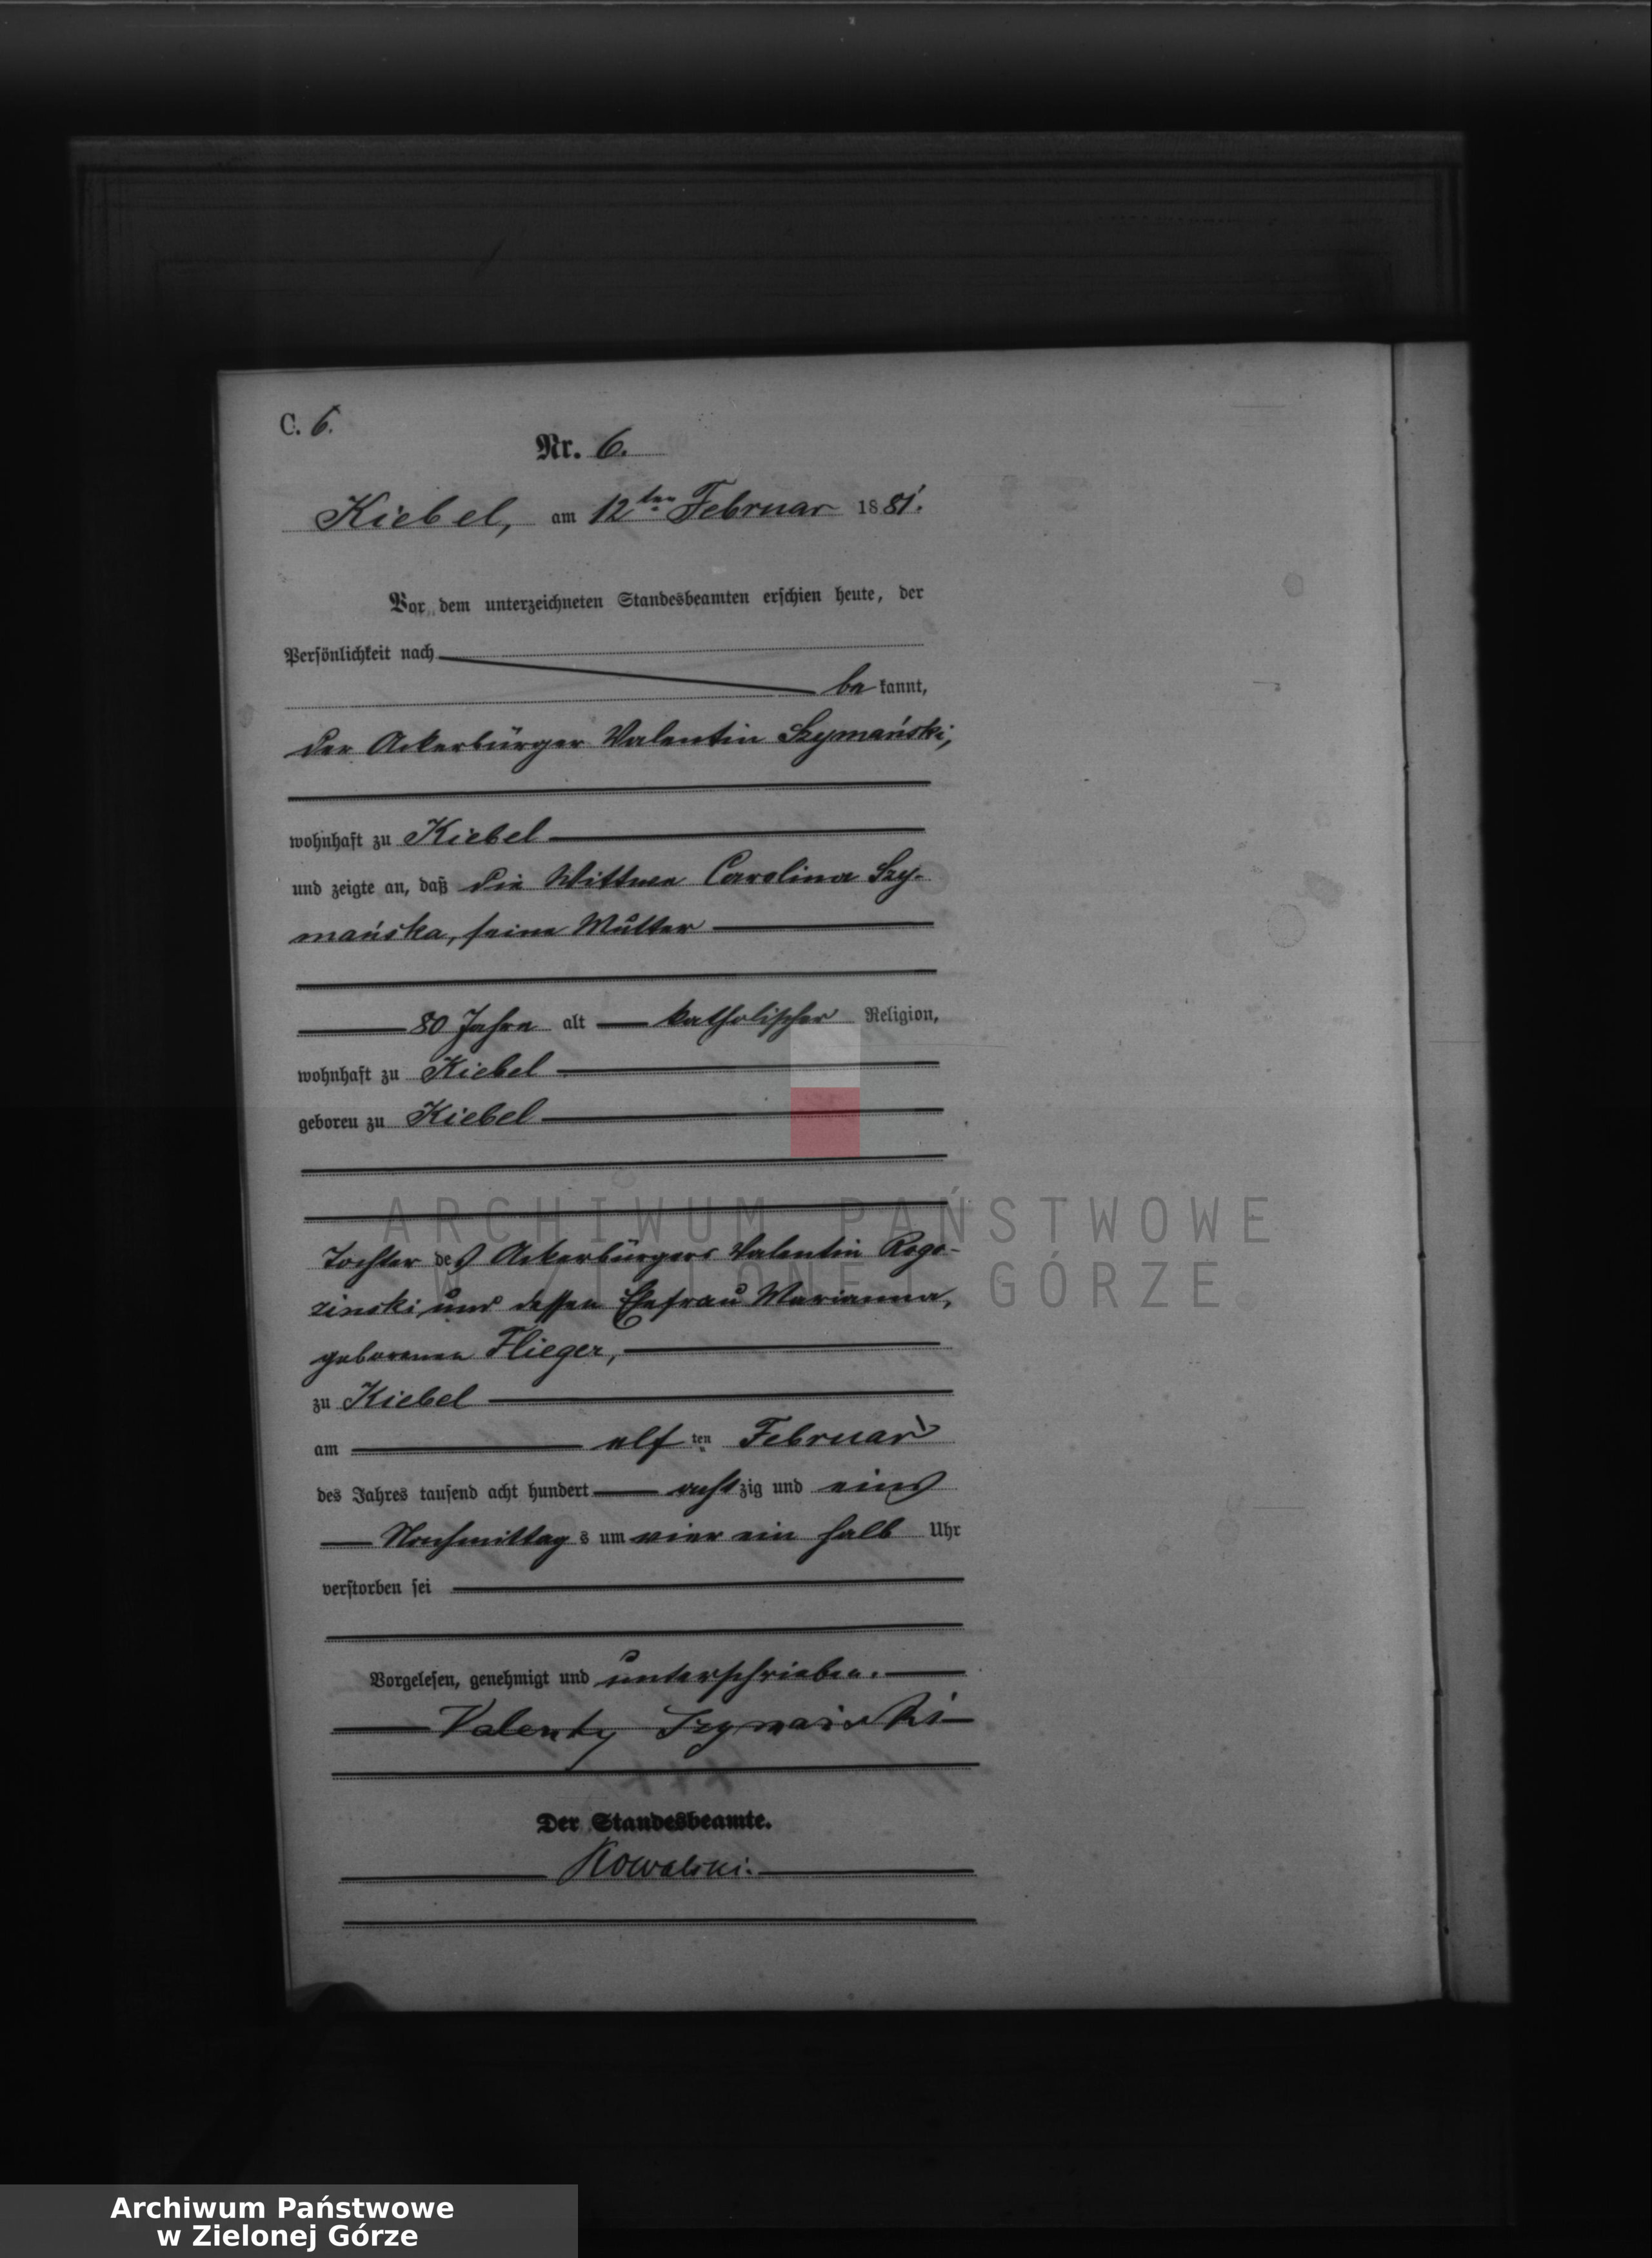 C. 6.
Nr. 6.
Kiebel, am 12ten Februar 1881.
Vor dem unterzeichneten Standesbeamten erschien heute, der
Persönlichkeit nach
be kannt,
der Ackerbürger Valentin Szymański,
wohnhaft zu Kiebel
und zeigte an, daß die Wittwe Carolina Szy-
mańska, seine Mutter
80 Jahre alt katholischer Religion,
wohnhaft zu Kiebel
geboren zu Kiebel
Tochter des Ackerbürgers Valentin Rogo-
zinski und dessen Ehefrau Marianna,
geborenen Flieger,
zu Kiebel
am elf ten Februar
des Jahres tausend acht hundert acht zig und eins
Nachmittag s um vier ein halb Uhr
verstorben sei
Vorgelesen, genehmigt und unterschrieben.
Valenty Szymański
Der Standesbeamte.
Kowalski.
ARCHIWUM PAŃSTWOWE
W ZIELONEJ GÓRZE
Archiwum Państwowe
w Zielonej Górze